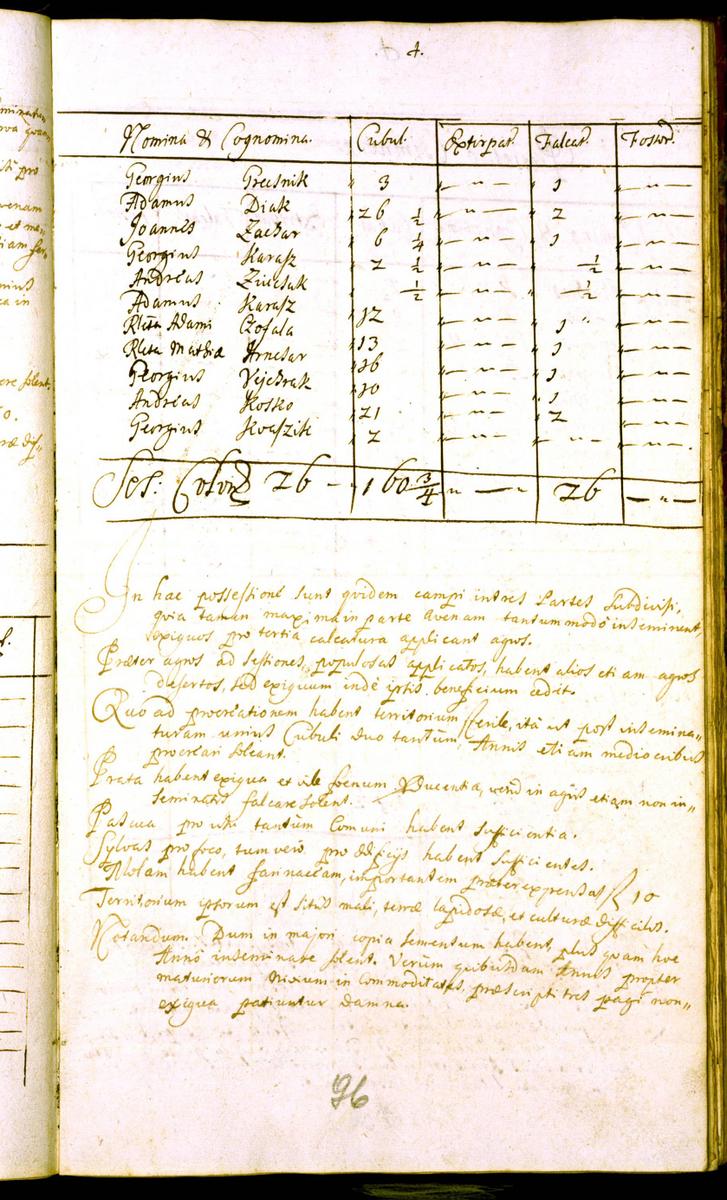 4.
Nomina & Cognomina. Cubul. Extirpat. Falcat. Fossor.
Georgius 3 „ — „ — 1 „ — „ —
Adamus Diak 26 1/2 „ — „ — 2 „ — „ —
Joannes Zachar 6 1/4 „ — „ — 1 „ — „ —
Georgius Karasz 2 1/2 „ — „ — 1/2 „ — „ —
Andreas 1/2 „ — „ — 1/2 „ — „ —
Adamus Karasz 12 „ — „ — 1 „ — „ —
Rlta Adami Czofala 13 „ — „ — 1 „ — „ —
Rlta Mathiæ 16 „ — „ — 1 „ — „ —
Georgius 10 „ — „ — 1 „ — „ —
Andreas Kosko 21 „ — „ — 2 „ — „ —
Georgius Kvaszik 2 „ — „ — „ — „ — „ — „ —
Ses: Colon 26 — 160 3/4 „ — „ 26 — „ —
In hac possessione sunt quidem campi in tres Partes Subdivisi,
quia tamen maxima in parte Avenam tantummodo inseminent,
exiguos pro tertia calcatura applicant agros.
Præter agros ad sessiones populosas applicatos, habent alios etiam agros
desertos, sed exiguum inde ipsis beneficium cedit.
Quo ad procreationem habent territorium sterile, ità ut post insemina„
turam unius Cubuli duo tantum, Annis etiam mediocribus
procreari soleant.
Prata habent exigua et vile foenum Producentia, verum in agris etiam non in„
seminatis falcare solent.
Pascua pro usu tantum Comuni habent sufficientia.
Sylvas pro foco, tum vero pro ædificijs habent sufficientes.
Molam habent farinaceam, importantem præter expensas f 10
Territorium ipsorum est situs mali, terræ lapidosæ, et culturæ difficilis.
Notandum. Dum in majori copia sementum habent, plus quam hoc
Anno inseminare solent. Verum quibusdam Annis propter
maturiorum Nivium in commoditates, præscripti tres pagi non„
exigua patiuntur damna.
96